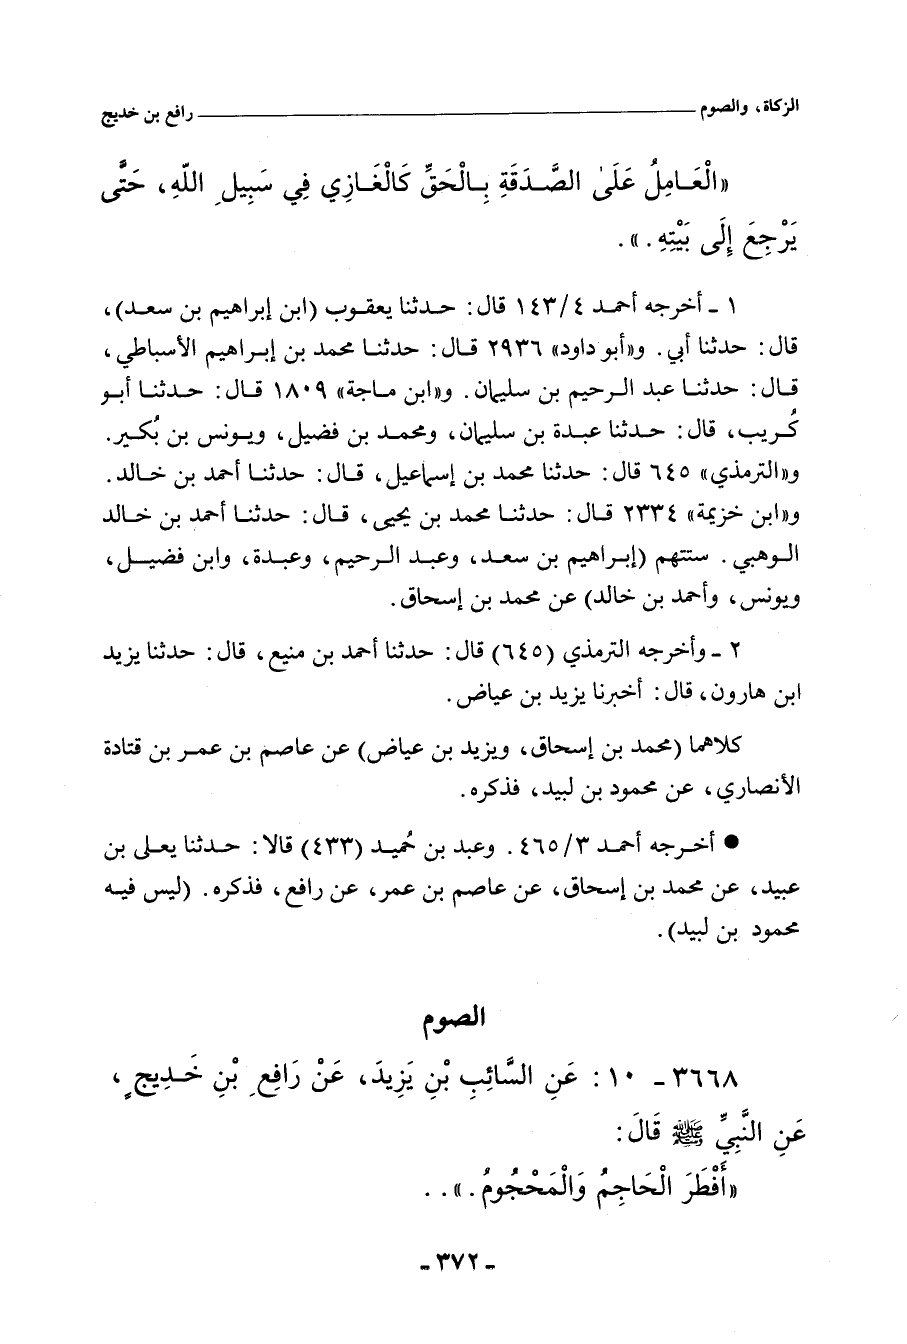 الزكاة، والصوم ــــــــــــــــــــ رافع بن خديج
«الْعَـامِلُ عَلَىٰ الصَّـدَقَةِ بِـالْحَقِّ كَالْغَـازِي فِي سَبِيلِ اللّهِ، حَتَّى
يَرْجِعَ إِلَى بَيْتِهِ.».
١ ـ أخرجه أحمـد ٤/١٤٣ قال: حـدثنا يعقـوب (ابن إبراهيم بن سعـد)،
قال: حدثنا أبي. و«أبو داود» ٢٩٣٦ قـال: حدثنـا محمد بن إبـراهيم الأسباطي،
قـال: حدثنـا عبد الـرحيم بن سليمان. و«ابن مـاجة» ١٨٠٩ قـال: حـدثنـا أبـو
كُـريب، قال: حـدثنا عبـدة بن سليمان، ومحمـد بن فضيل، ويـونس بن بُكـير.
و«الترمذي» ٦٤٥ قال: حدثنا محمد بن إسماعيل، قـال: حدثنـا أحمد بن خـالد.
و«ابن خزيمة» ٢٣٣٤ قـال: حدثنـا محمد بن يحيى، قـال: حدثنـا أحمد بن خـالد
الـوهبي. ستتهم (إبـراهيم بن سعـد، وعبـد الـرحيم، وعبـدة، وابن فضيـل،
ويونس، وأحمد بن خالد) عن محمد بن إسحاق.
٢ ـ وأخرجه الترمذي (٦٤٥) قال: حدثنا أحمد بن منيع، قال: حدثنا يزيد
ابن هارون، قال: أخبرنا يزيد بن عياض.
كلاهما (محمد بن إسحاق، ويزيد بن عياض) عن عاصم بن عمـر بن قتادة
الأنصاري، عن محمود بن لبيد، فذكره.
● أخـرجه أحمـد ٣/٤٦٥. وعبد بن حُميـد (٤٣٣) قالا: حـدثنا يعلى بن
عبيد، عن محمد بن إسحاق، عن عاصم بن عمر، عن رافع، فذكره. (ليس فيـه
محمود بن لبيد).
الصوم
٣٦٦٨ ـ ١٠: عَنِ السَّائِبِ بْنِ يَزِيدَ، عَنْ رَافِعِ بْنِ خَـدِيجٍ،
عَنِ النَّبِيِّ ﷺ قَالَ:
«أَفْطَرَ الْحَاجِمُ وَالْمَحْجُومُ.»..
ـ ٣٧٢ ـ